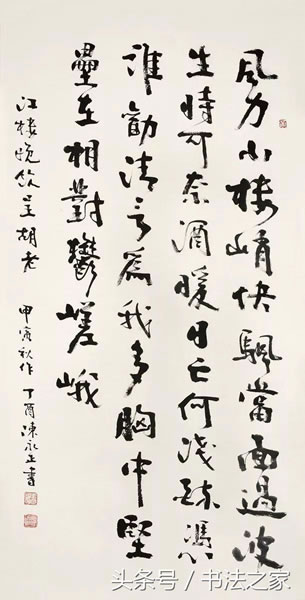 風力小樓峭快颿當面過波
生時可奈酒暖日亡何淺憑
誰勸清言為我多胸中堅
壘在相對鬱嵯峨
江樓晚飲呈胡老 甲寅秋作 丁酉陳永正書
头条号 / 书法之家